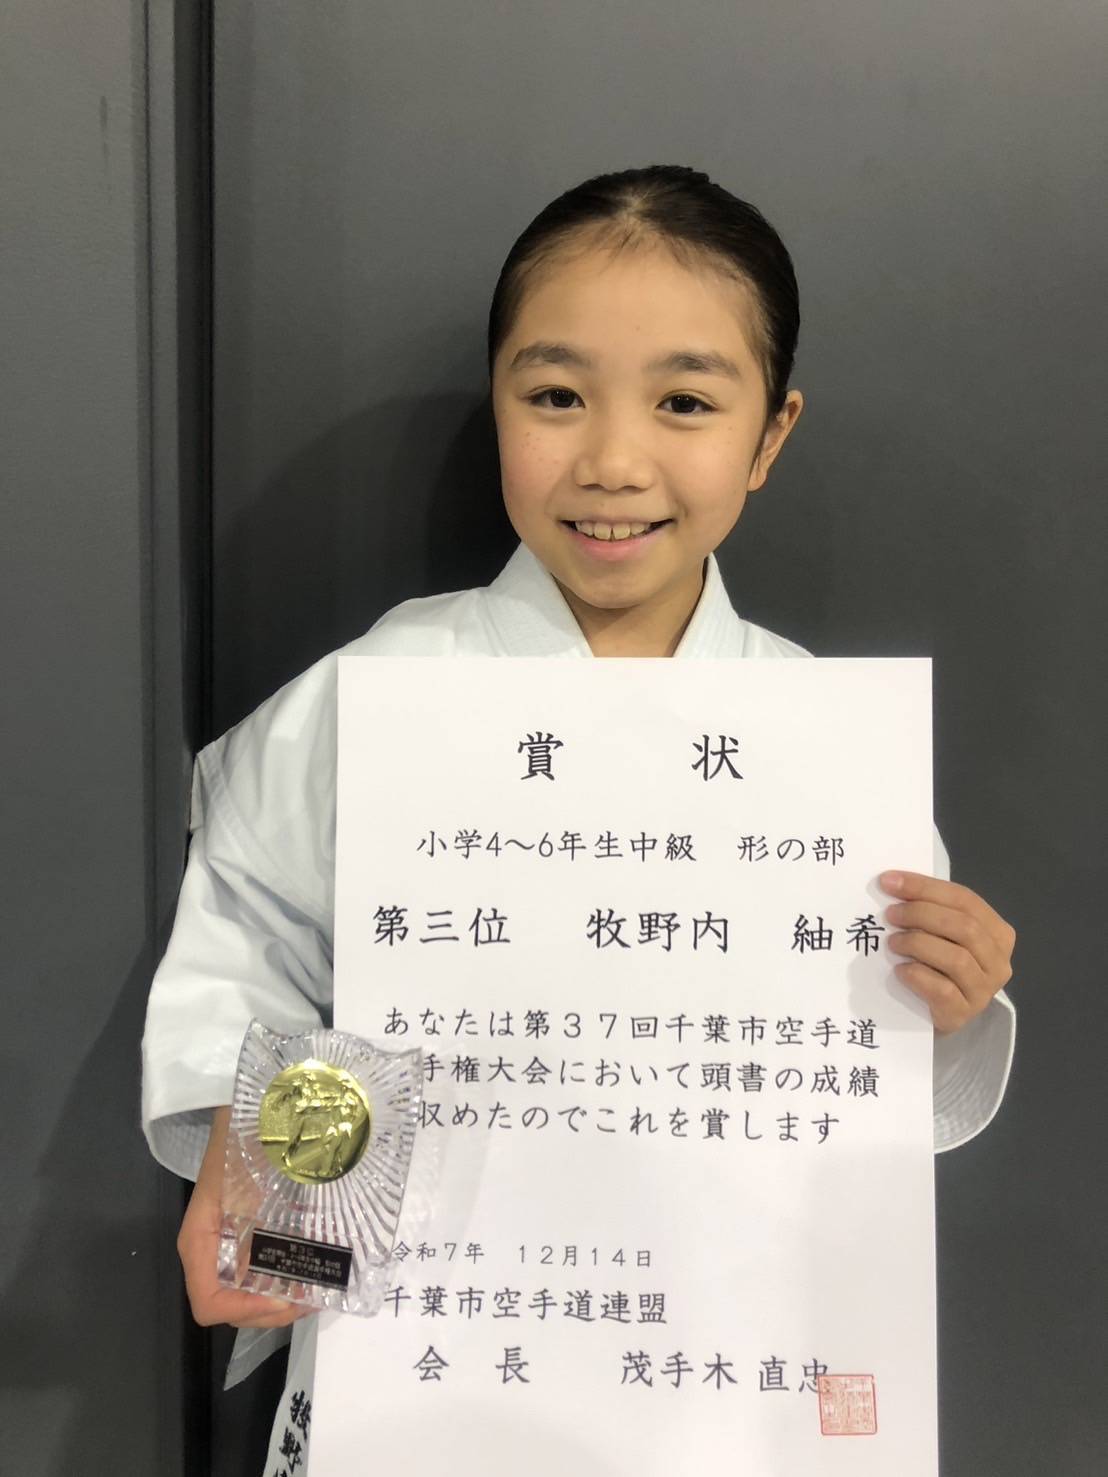 賞 状
小学4～6年生中級 形の部
第三位 牧野内 紬希
あなたは第37回千葉市空手道
手権大会において頭書の成績
収めたのでこれを賞します
令和7年 12月14日
千葉市空手道連盟
会 長 茂手木 直忠
第3位
牧野